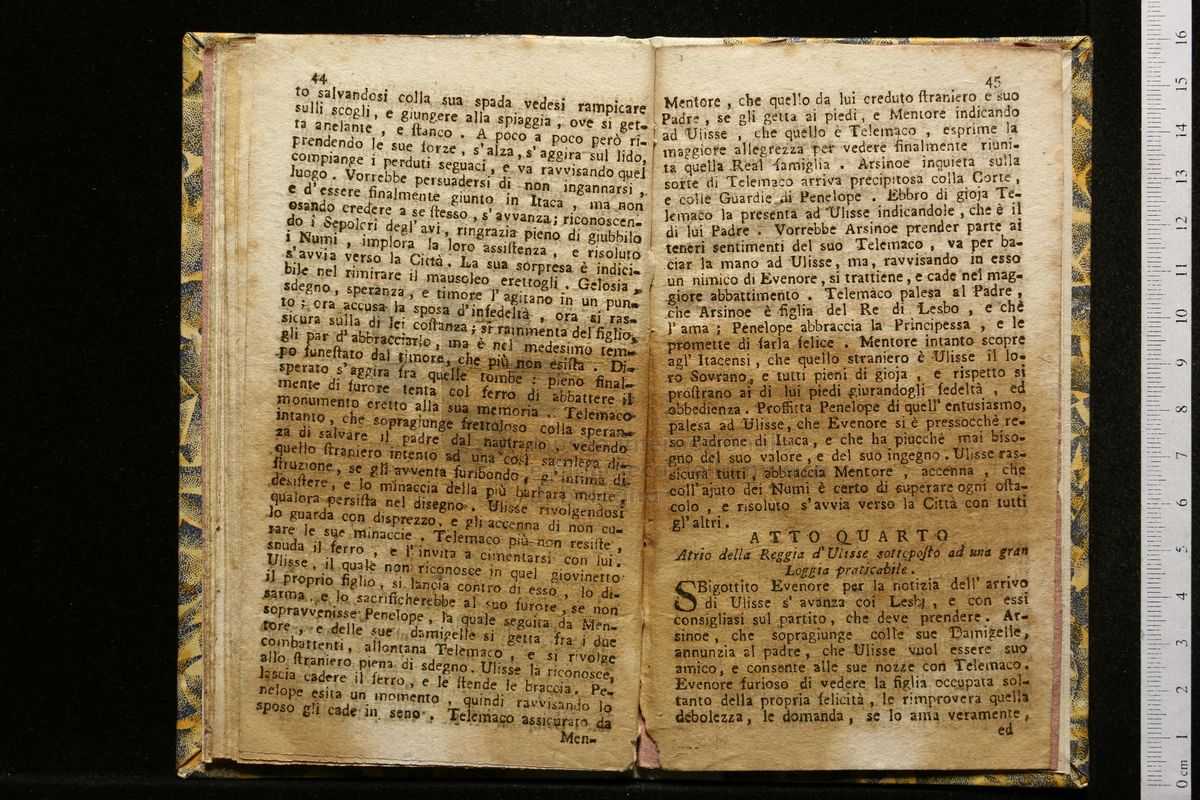 44
to salvandosi colla sua spada vedesi rampicare
sulli scogli, e giungere alla spiaggia, ove si get-
ta anelante, e stanco. A poco a poco però ri-
prendendo le sue forze, s'alza, s'aggira sul lido,
compiange i perduti seguaci, e va ravvisando quel
luogo. Vorrebbe persuadersi di non ingannarsi,
e d'essere finalmente giunto in Itaca, ma non
osando credere a se stesso, s'avvanza; riconoscen-
do i Sepolcri degl'avi, ringrazia pieno di giubbilo
i Numi, implora la loro assistenza, e risoluto
s'avvia verso la Città. La sua sorpresa è indici-
bile nel rimirare il mausoleo erettogli. Gelosia,
sdegno, speranza, e timore l'agitano in un pun-
to; ora accusa la sposa d'infedeltà, ora si ras-
sicura sulla di lei costanza; si rammenta del figlio,
gli par d'abbracciarlo, ma è nel medesimo tem-
po funestato dal timore, che più non esista. Di-
sperato s'aggira fra quelle tombe: pieno final-
mente di furore tenta col ferro di abbattere il
monumento eretto alla sua memoria. Telemaco
intanto, che sopragiunge frettoloso colla speran-
za di salvare il padre dal naufragio, vedendo
quello straniero intento ad una così sacrilega di-
struzione, se gli avventa furibondo, gl'intima di
desistere, e lo minaccia della più barbara morte,
qualora persista nel disegno. Ulisse rivolgendosi
lo guarda con disprezzo, e gli accenna di non cu-
rare le sue minaccie. Telemaco più non resiste,
snuda il ferro, e l'invita a cimentarsi con lui.
Ulisse, il quale non riconosce in quel giovinetto
il proprio figlio, si lancia contro di esso, lo di-
sarma, e lo sacrificherebbe al suo furore, se non
sopravvenisse Penelope, la quale seguita da Men-
tore, e delle sue damigelle si getta fra i due
combattenti, allontana Telemaco, e si rivolge
allo straniero piena di sdegno. Ulisse la riconosce,
lascia cadere il ferro, e le stende le braccia. Pe-
nelope esita un momento, quindi ravvisando lo
sposo gli cade in seno. Telemaco assicurato da
Men-
45
Mentore, che quello da lui creduto straniero è suo
Padre, se gli getta ai piedi, e Mentore indicando
ad Ulisse, che quello è Telemaco, esprime la
maggiore allegrezza per vedere finalmente riuni-
ta quella Real famiglia. Arsinoe inquieta sulla
sorte di Telemaco arriva precipitosa colla Corte,
e colle Guardie di Penelope. Ebbro di gioja Te-
lemaco la presenta ad Ulisse indicandole, che è il
di lui Padre. Vorrebbe Arsinoe prender parte ai
teneri sentimenti del suo Telemaco, va per ba-
ciar la mano ad Ulisse, ma, ravvisando in esso
un nimico di Evenore, si trattiene, e cade nel mag-
giore abbattimento. Telemaco palesa al Padre,
che Arsinoe è figlia del Re di Lesbo, e che
l'ama; Penelope abbraccia la Principessa, e le
promette di farla felice. Mentore intanto scopre
agl'Itacensi, che quello straniero è Ulisse il lo-
ro Sovrano, e tutti pieni di gioja, e rispetto si
prostrano ai di lui piedi giurandogli fedeltà, ed
obbedienza. Profitta Penelope di quell'entusiasmo,
palesa ad Ulisse, che Evenore si è pressocchè re-
so Padrone di Itaca, e che ha piucchè mai biso-
gno del suo valore, e del suo ingegno. Ulisse ras-
sicura tutti, abbraccia Mentore, accenna, che
coll'ajuto dei Numi è certo di superare ogni osta-
colo, e risoluto s'avvia verso la Città con tutti
gl'altri.
ATTO QUARTO
Atrio della Reggia d'Ulisse sottoposto ad una gran
Loggia praticabile.
SBigottito Evenore per la notizia dell'arrivo
di Ulisse s'avanza coi Lesbj, e con essi
consigliasi sul partito, che deve prendere. Ar-
sinoe, che sopragiunge colle sue Damigelle,
annunzia al padre, che Ulisse vuol essere suo
amico, e consente alle sue nozze con Telemaco.
Evenore furioso di vedere la figlia occupata sol-
tanto della propria felicità, le rimprovera quella
debolezza, le domanda, se lo ama veramente,
ed
0 cm 1 2 3 4 5 6 7 8 9 10 11 12 13 14 15 16